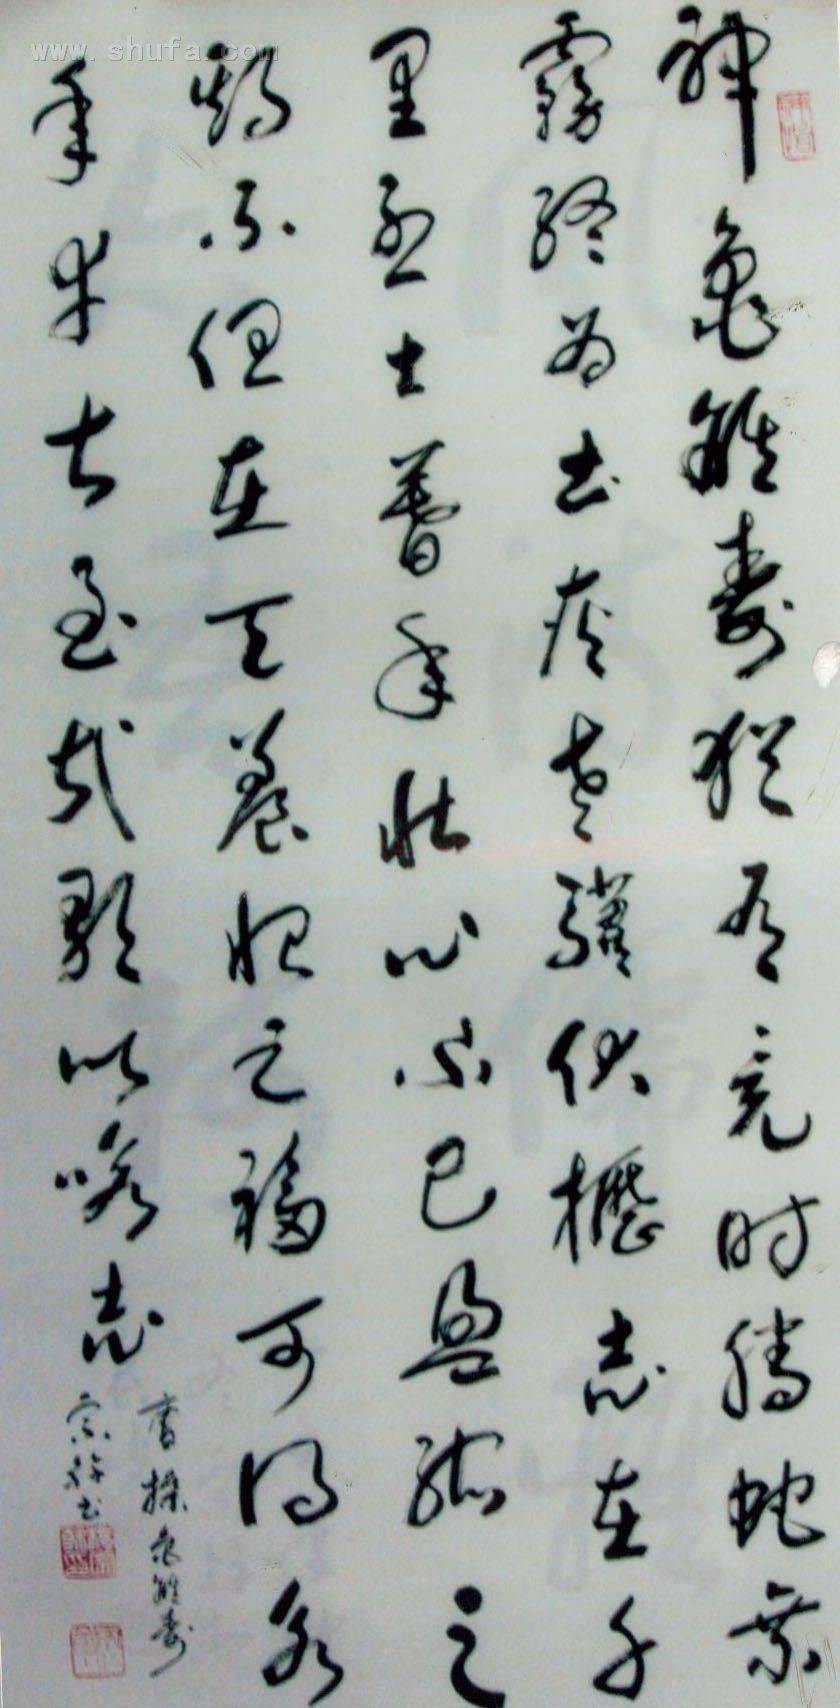 神龜雖壽猶有竟时騰蛇乘
霧終为土灰老驥伏櫪志在千
里烈士暮年壯心不已盈縮之
期不但在天養怡之福可得永
年幸甚至哉歌以咏志
曹操龜雖壽
书
www.shufa.com